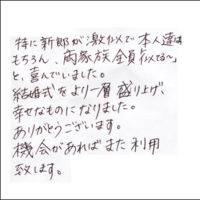 特に新郎が激似で本人達は
もちろん、両家族全員似てる~
と、喜んでいました。
結婚式をより一層盛り上げ、
幸せなものになりました。
ありがとうございます。
機会があればまた利用
致します。